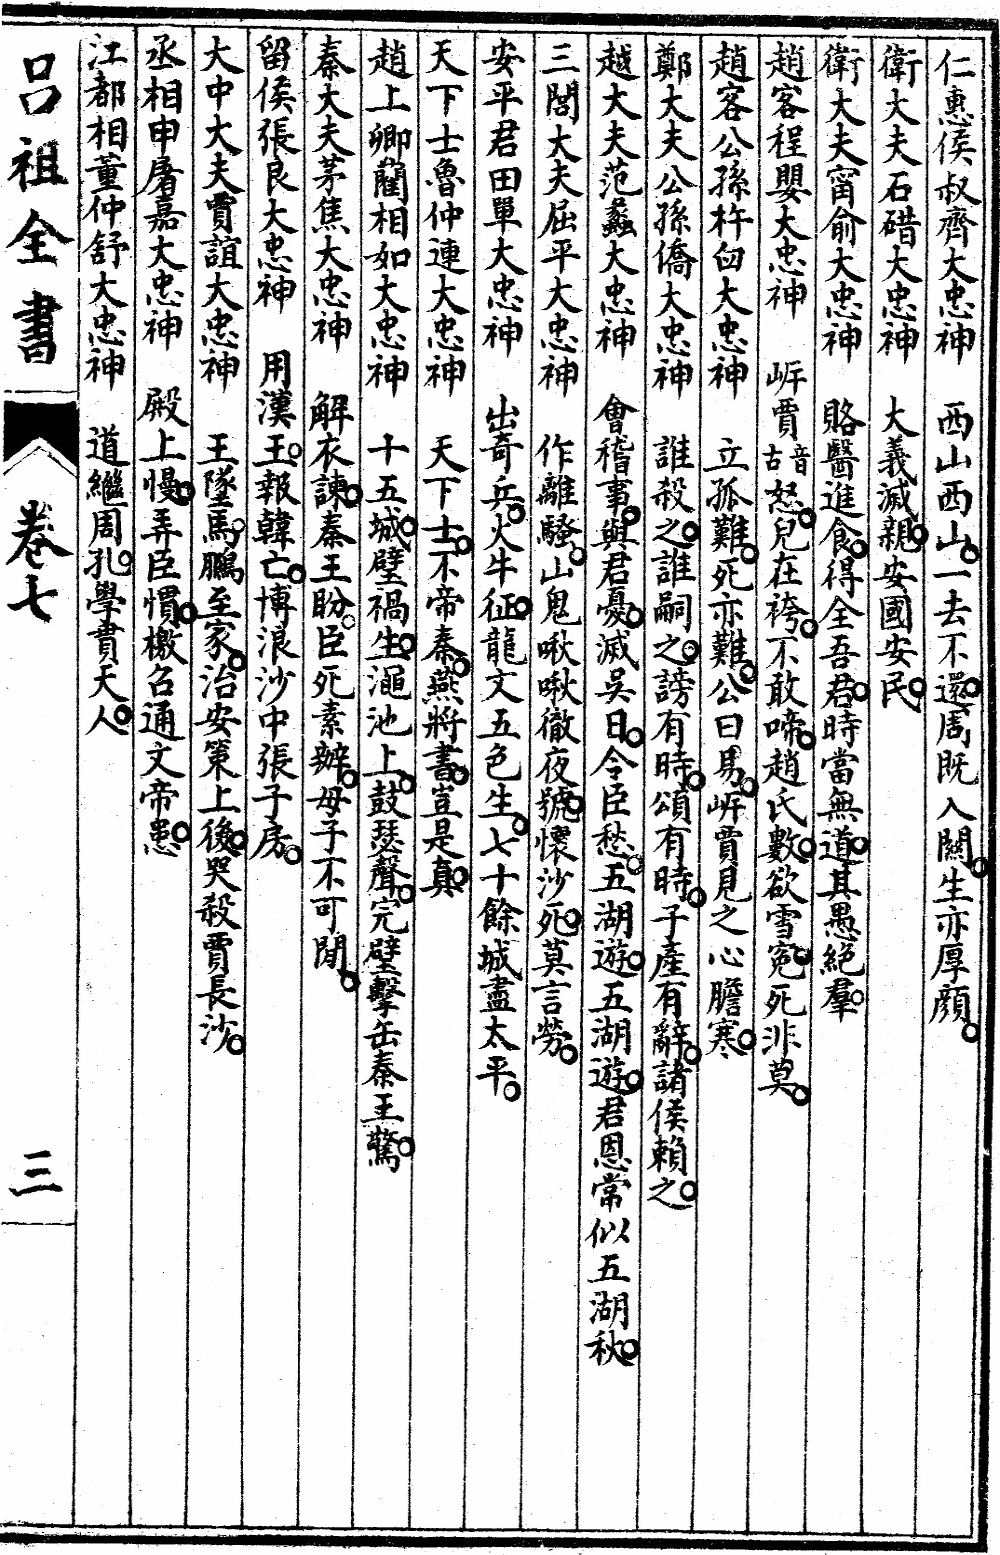 仁惠侯叔齊大忠神　西山西山一去不還周既入關生亦厚顔
衛大夫石碏大忠神　大義滅親安國安民
衛大夫甯俞大忠神　賂醫進食得全吾君時當無道其愚絕羣
趙客程嬰大忠神　岍賈音古怒兒在袴不敢啼趙氏數欲雪冤死非莫
趙客公孫杵臼大忠神　立孤難死亦難公曰易岍賈見之心膽寒
鄭大夫公孫僑大忠神　誰殺之誰嗣之謗有時頌有時子產有辭諸侯賴之
越大夫范蠡大忠神　會稽事與君憂滅吳日令臣愁五湖遊五湖遊君恩常似五湖秋
三閭大夫屈平大忠神　作離騷山鬼啾啾徹夜號懷沙死莫言勞
安平君田單大忠神　出奇兵火牛征龍文五色生七十餘城盡太平
天下士魯仲連大忠神　天下士不帝秦燕將書豈是真
趙上卿藺相如大忠神　十五城璧禍生澠池上鼓瑟聲完璧擊缶秦王驚
秦大夫茅焦大忠神　解衣諫秦王盼臣死素辦母子不可閒
留侯張良大忠神　用漢王報韓亡博浪沙中張子房
大中大夫賈誼大忠神　王墜馬鵩至家治安策上後哭殺賈長沙
丞相申屠嘉大忠神　殿上慢弄臣慣檄召通文帝患
江都相董仲舒大忠神　道繼周孔學貫天人
呂祖全書　卷七　三